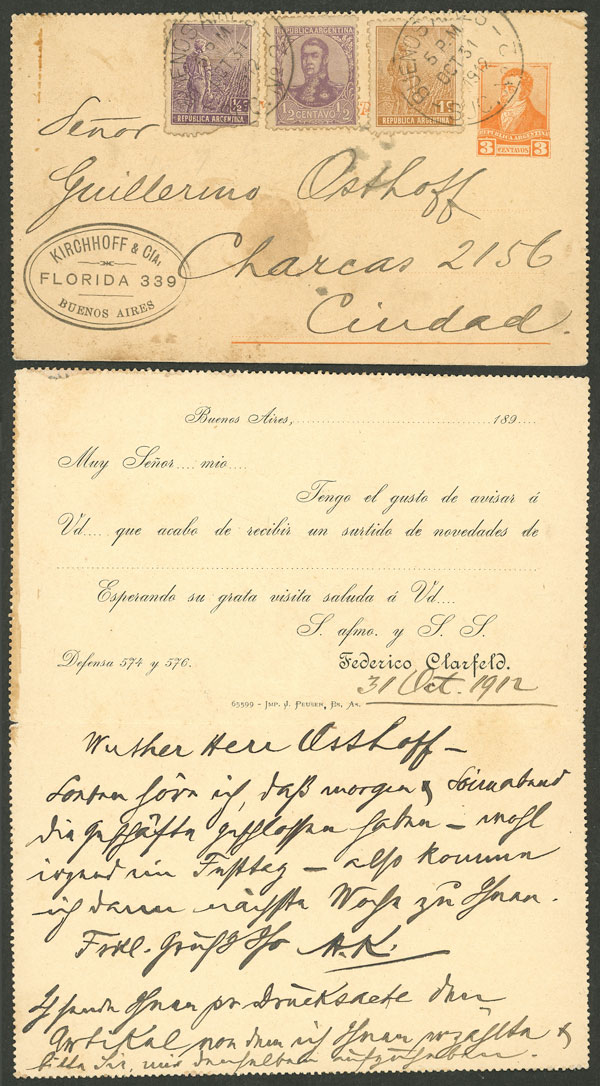 BUENOS AIRES
5 P.M.
OCT 31
½ c.
REPUBLICA ARGENTINA
REPUBLICA ARGENTINA
½ CENTAVO ½
1 c.
REPUBLICA ARGENTINA
BUENOS AIRES
5 P.M.
OCT 31
REPUBLICA ARGENTINA
3 CENTAVOS 3
Señor
Guillermo Osthoff
Charcas 2156
Ciudad.
KIRCHHOFF & CIA,
FLORIDA 339
BUENOS AIRES
Buenos Aires, 189
Muy Señor.... mio....
Tengo el gusto de avisar á
Vd.... que acabo de recibir un surtido de novedades de
Esperando su grata visita saluda á Vd....
S. afmo. y S. S.
Defensa 574 y 576. Federico Clarfeld.
31 Oct. 1912
65599 - IMP. J. PEUSER, BS. AS.
Werther Herr Osthoff –
Soeben höre ich, daß morgen & Sonnabend
die Geschäfte geschlossen haben – wohl
irgend ein Festtag – also komme
ich dann nächste Woche zu Ihnen.
Frdl. Gruß Ihr A.K.
Ich sende Ihnen pr Drucksache den
Artikel von dem ich Ihnen erzählte &
bitte Sie, mir denselben aufzuheben.